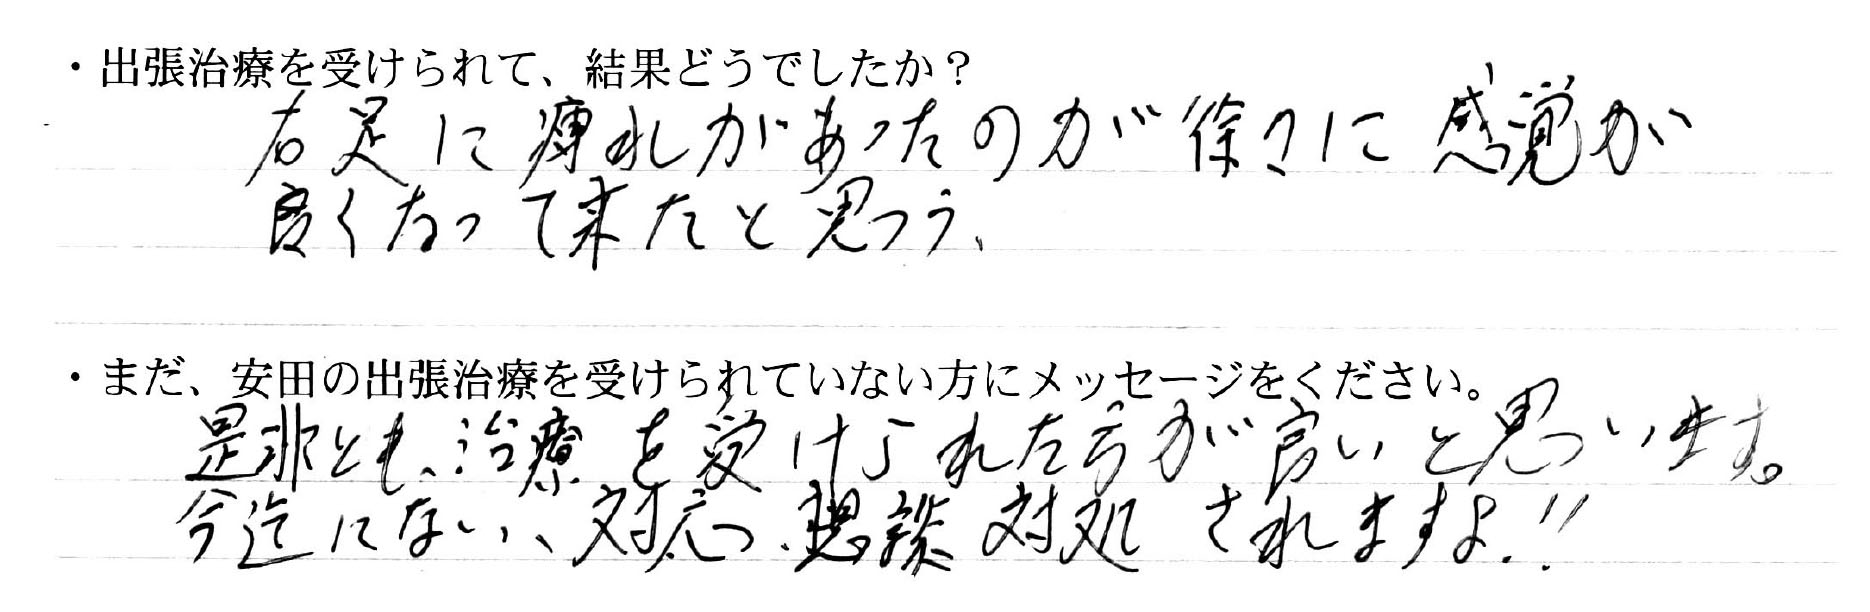 ・出張治療を受けられて、結果どうでしたか？
右足に痺れがあったのが徐々に感覚が
良くなって来たと思う、
・まだ、安田の出張治療を受けられていない方にメッセージをください。
是非とも、治療を受けられた方が良いと思います。
今迄にない、対応、想談対処されますよ!!